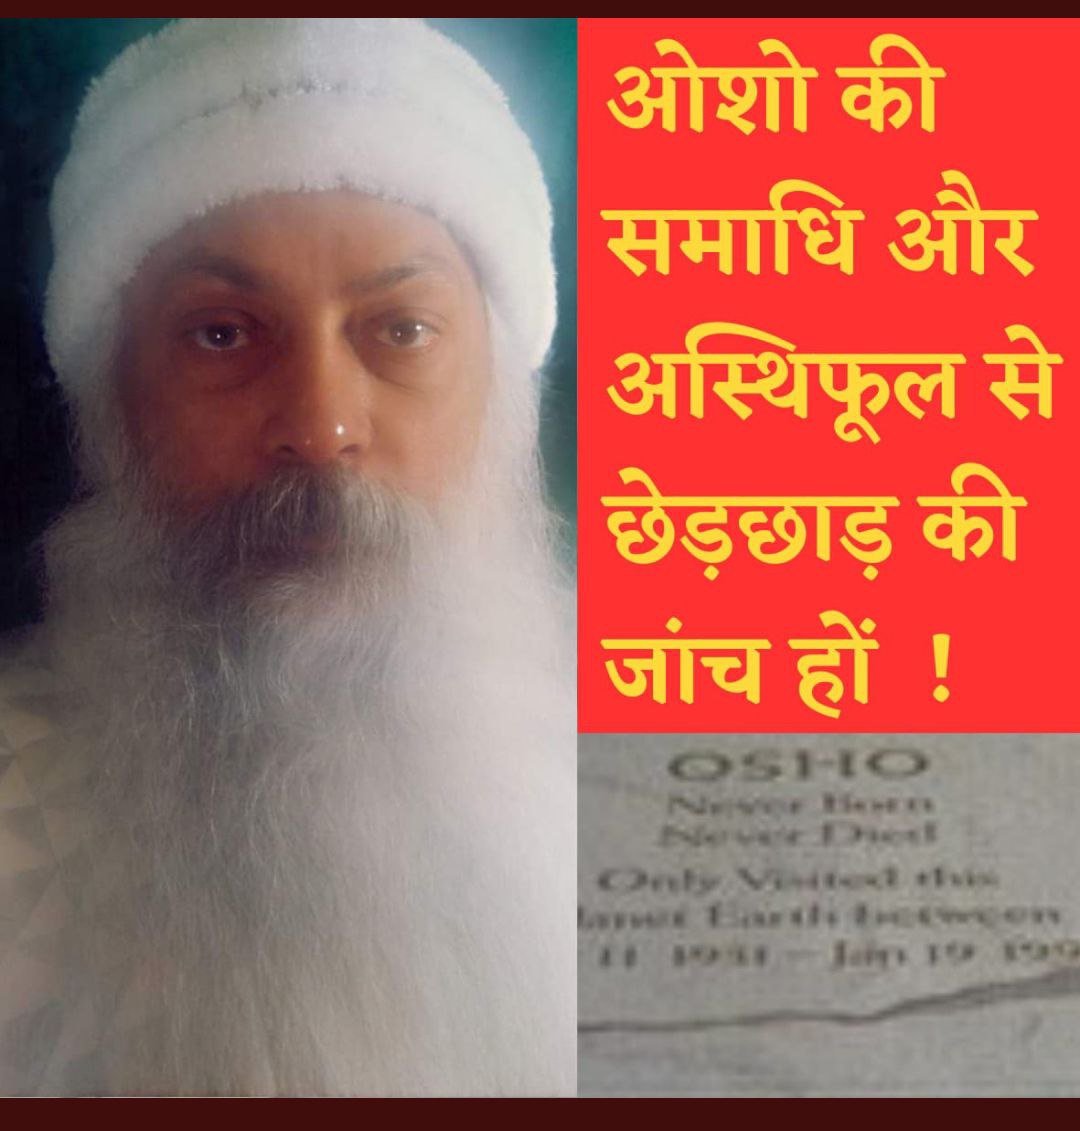 ओशो की
समाधि और
अस्थिफूल से
छेड़छाड़ की
जांच हों !
OSHO
Never Born
Never Died
Only Visited this
lanet Earth between
11 1931 – Jan 19 199